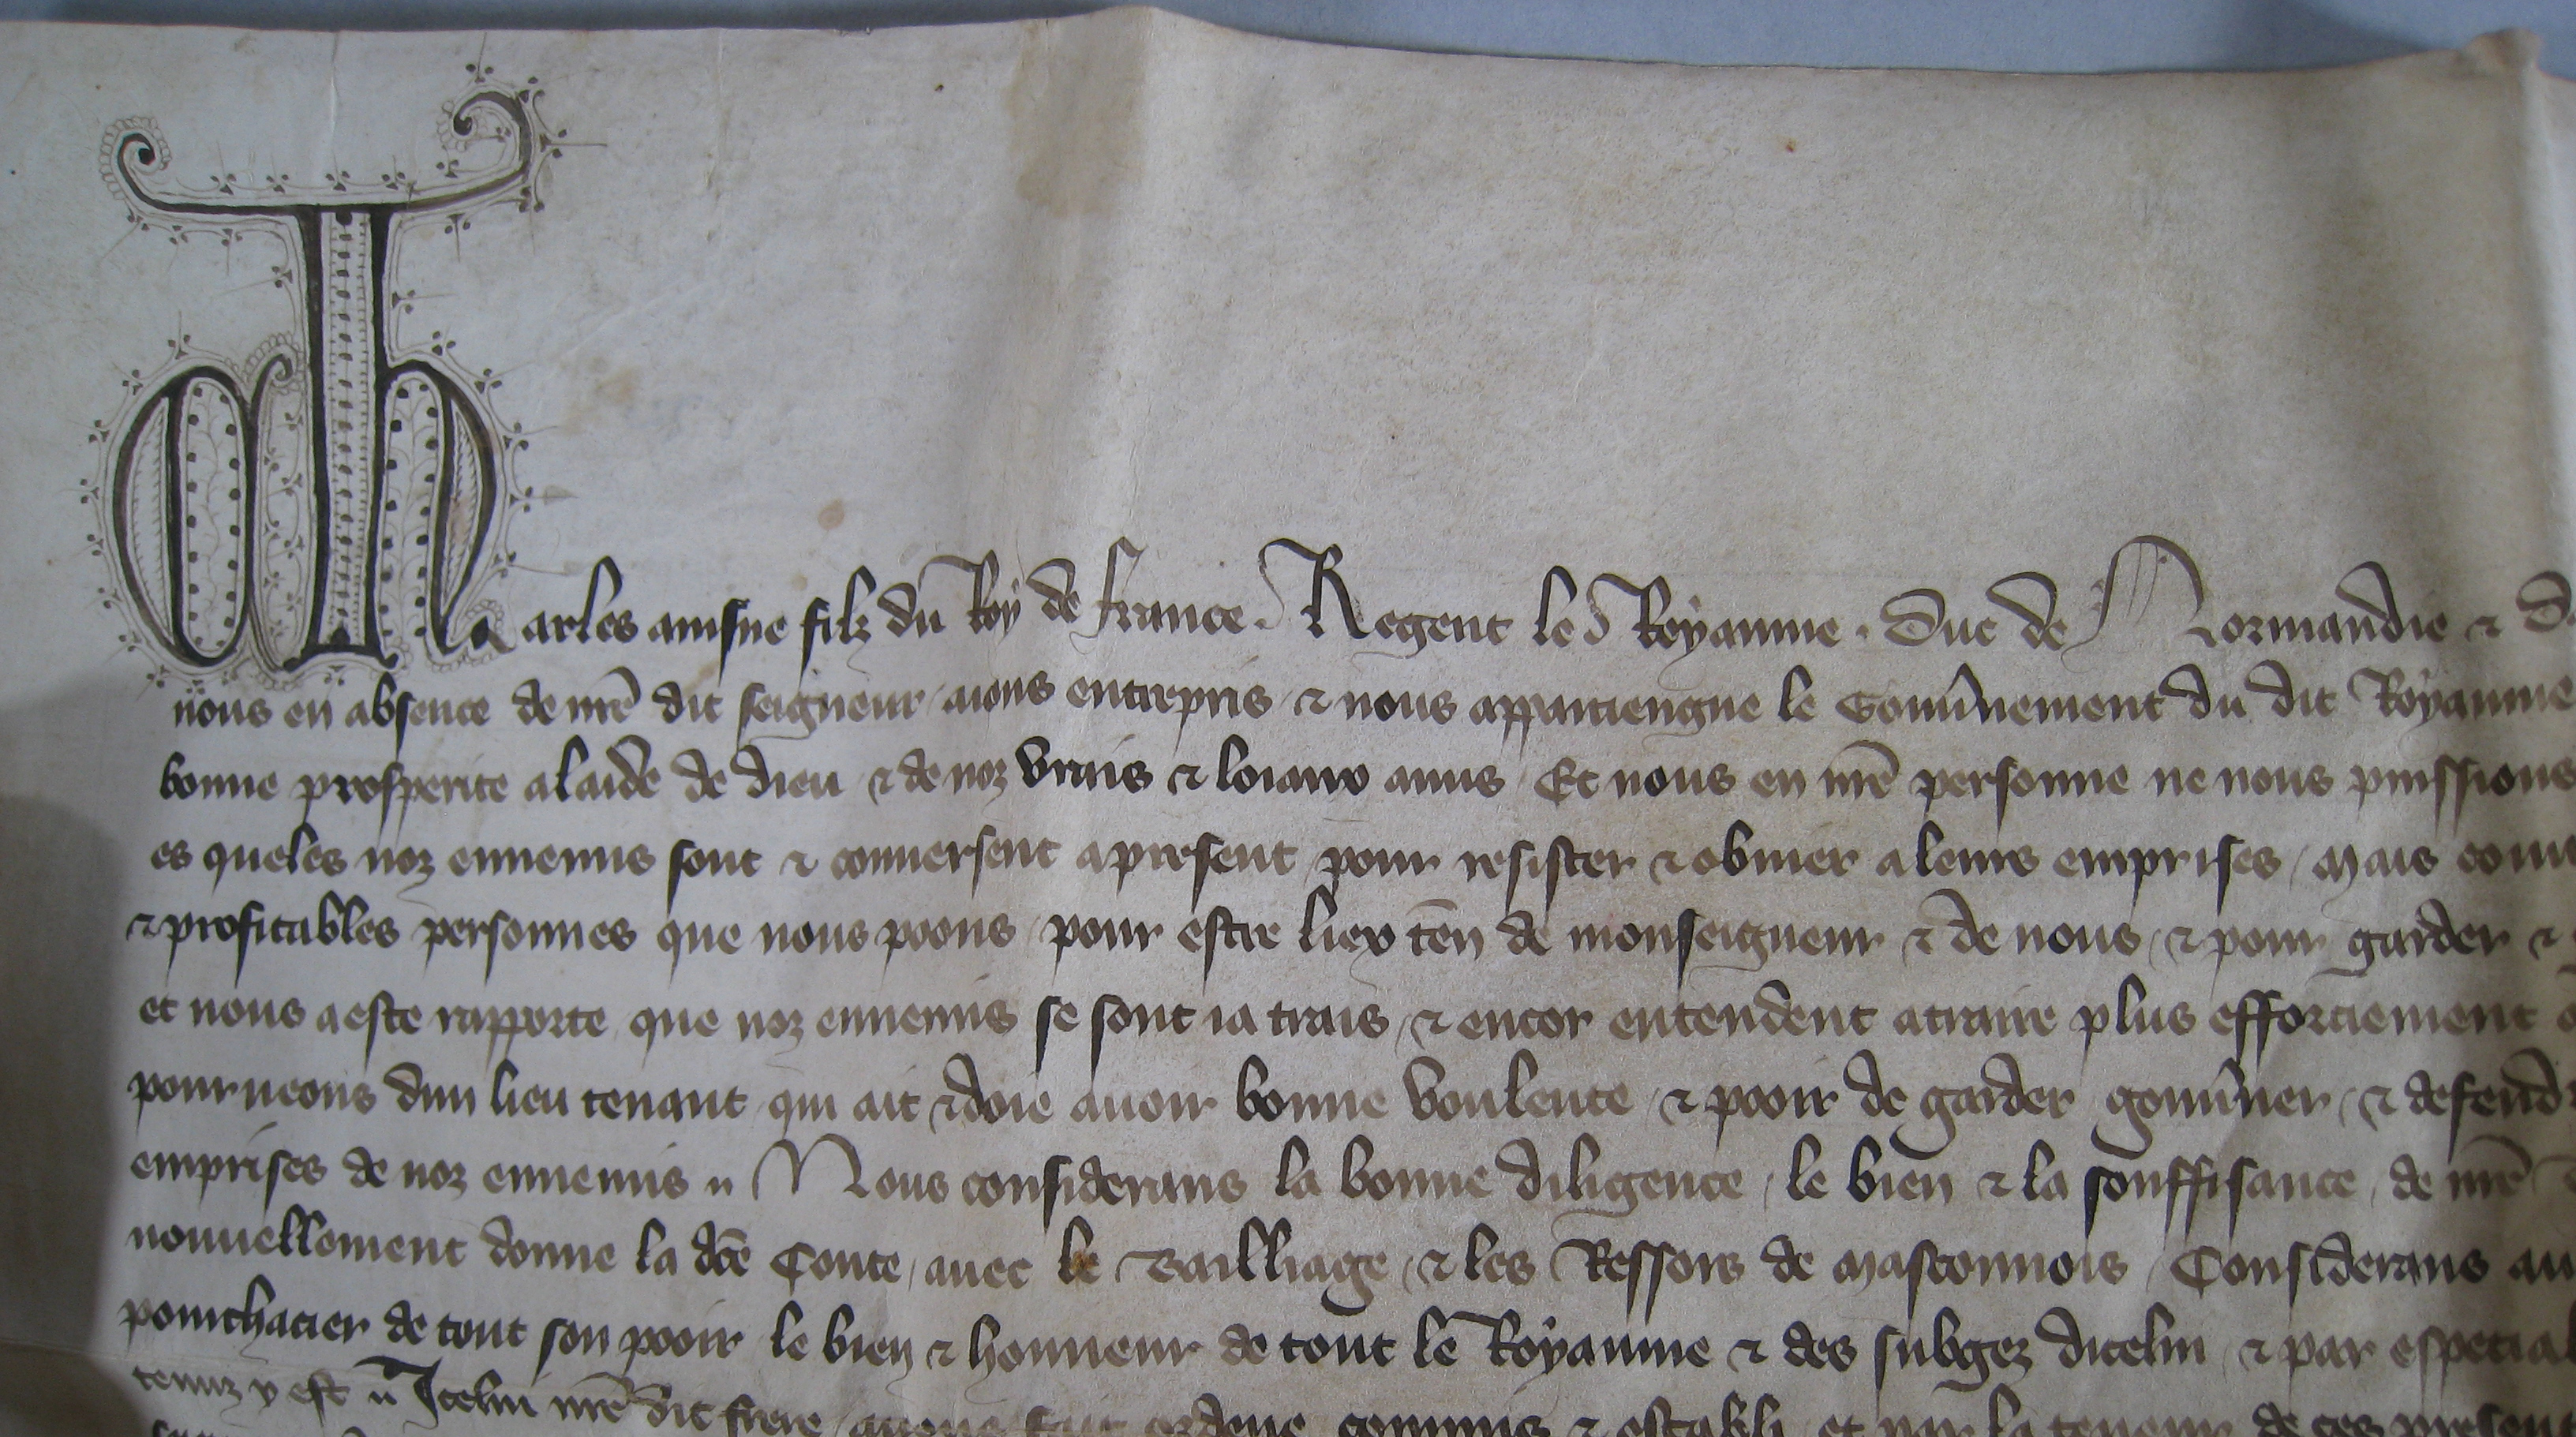 Charles ainsne filz du Roy de france. Regent le Royaume. Duc de Normandie &
nous en absence de nr̄e dit seigneur / aions entrepris / & nous appartiengne le Gouũnement du dit Royaume
bonne prosperite a laide de dieu / & de noz vrais & loiaux amis / Et nous en nr̄e personne ne nous puissions
es queles noz ennemis sont & conuersent apresent / pour resister & obuier a leurs emprises / mais
& profitables personnes que nous poons / pour estre liex ten̄ de monseigneur & de nous / & pour garder &
et nous a este rapporte / que noz ennemis se sont ia trais / & encor entendent atraire plus efforciement
pourueons dun lieu tenant / qui ait & doie auoir bonne voulente / & pooir de garder / gouũner / & defend
emprises de noz ennemis // Nous considerans la bonne diligence / le bien & la souffisance / de nr̄e
nouuellement donne la dc̄e Conte / auec le Bailliage / & les Ressors de masconnois / Considerans au
pourchacier de tout son pooir le bien & honneur de tout le Royaume & des subgez dicelui / & par especial
tenuz y est // Icelui nr̄e dit frere / auons fait ordene commis & establi / et par la teneur de ces present